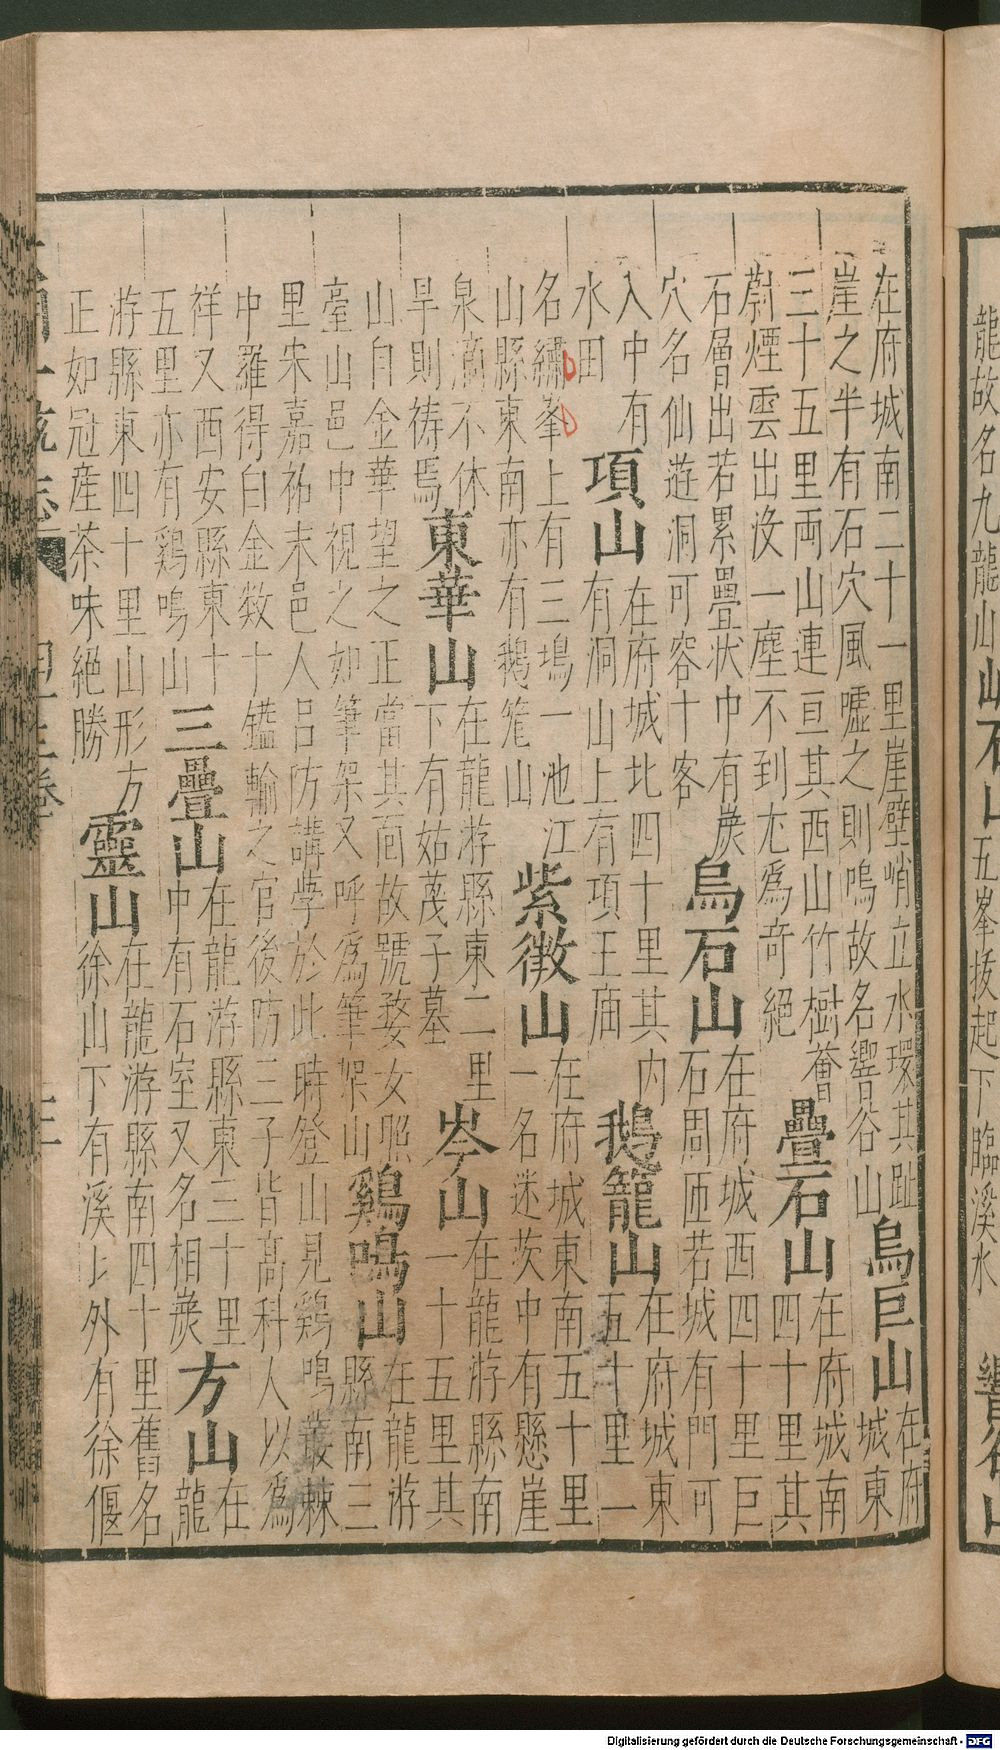 在府城南二十一里崖壁峭立水環其趾
崖之半有石穴風噓之則鳴故名響谷山
烏巨山
在府城東
三十五里兩山連亘其西山竹樹薈
蔚煙雲出沒一塵不到尤爲奇絕
疊石山
在府城南四十里其
石層出若累疊狀中有羨
穴名仙遊洞可容十客
烏石山
在府城西四十里巨
石周匝若城有門可
入中有水田
項山
在府城北四十里其內
有洞山上有項王廟
鵝籠山
在府城東五十里一
名繡峯上有三塢一池江
山縣東南亦有鵝籠山
紫微山
在府城東南五十里
一名迷茨中有懸崖
泉滴不休
旱則祷焉
東華山
在龍游縣東二里
下有姑蔑子墓
岑山
在龍游縣南
一十五里其
山自金華望之正當其面故號婺女照
臺山邑中視之如筆架又呼爲筆架山
鷄鳴山
在龍游縣南三
里宋嘉祐末邑人呂防講學於此時登山見鷄鳴叢棘
中羅得白金数十鎰輸之官後防三子皆高科人以爲
祥又西安縣東十
五里亦有鷄鳴山
三疊山
在龍游縣東三十里
中有石室又名相羨
方山
在龍
游縣東四十里山形方
正如冠産茶味絕勝
靈山
在龍游縣南四十里舊名
徐山下有溪上外有徐偃
龍故名九龍山
石山
五峯拔起下臨溪水